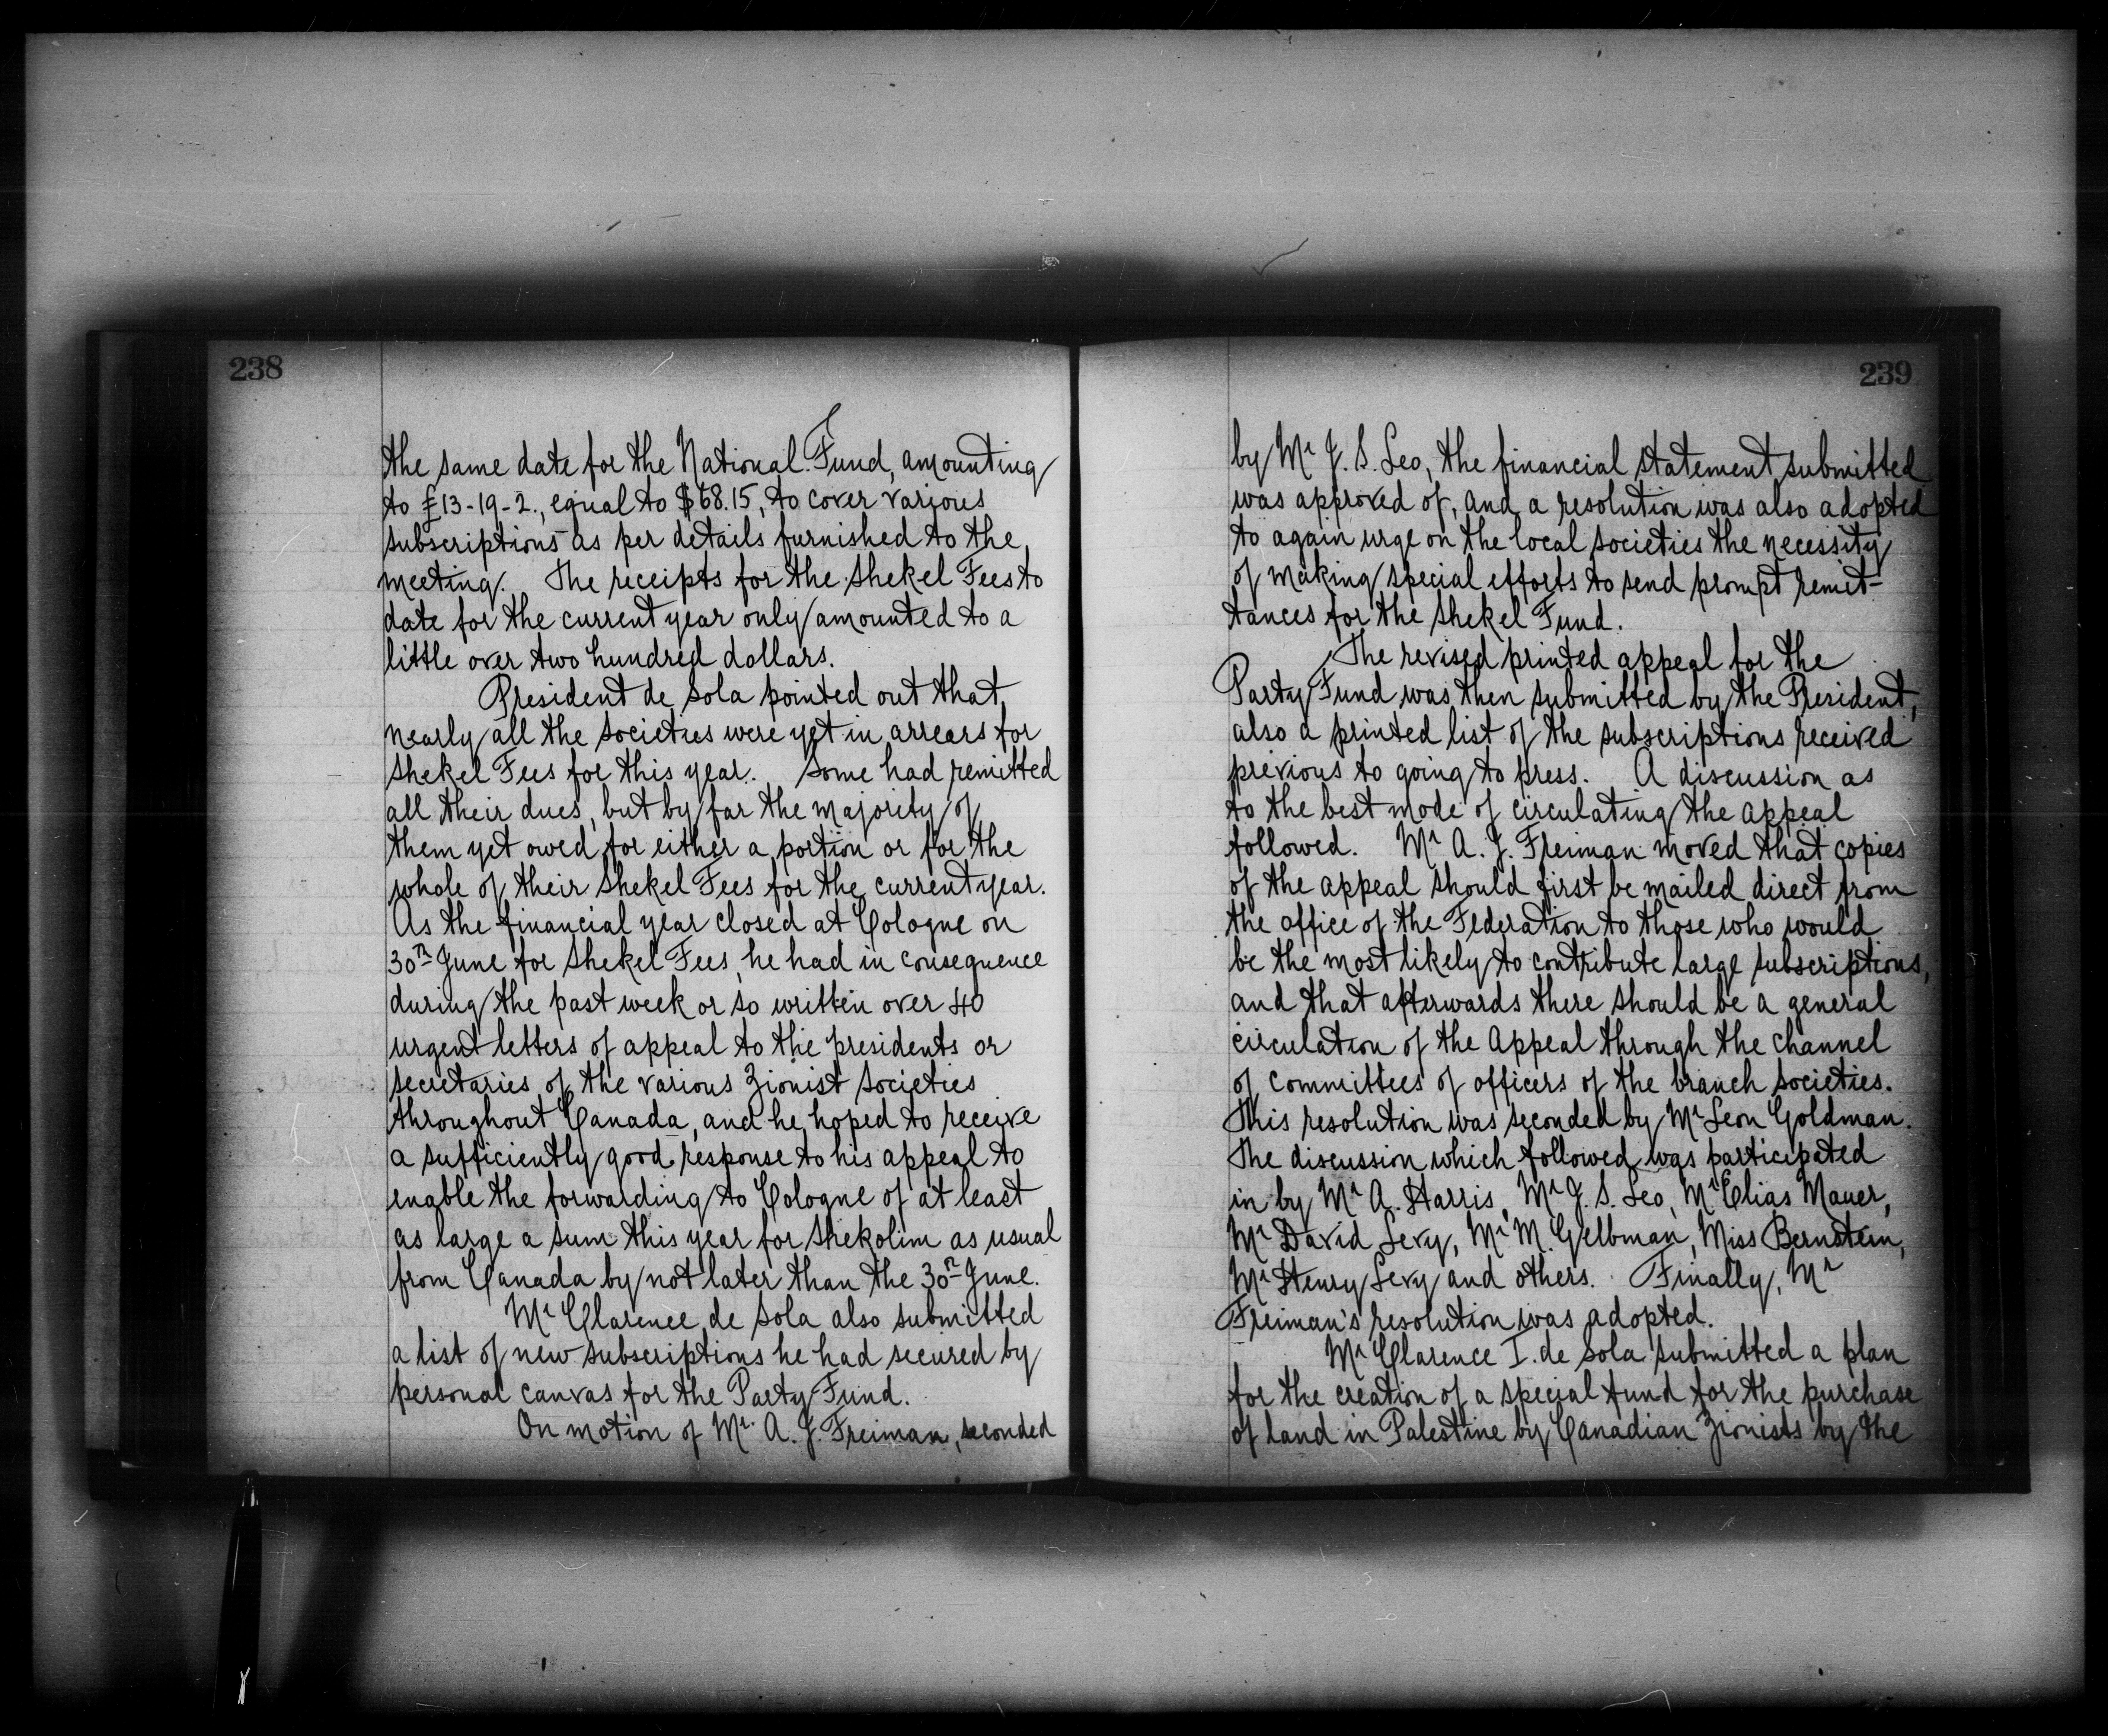 238
the same date for the National Fund, amounting
to £13-19-2., equal to $68.15, to cover various
subscriptions as per details furnished to the
meeting. The receipts for the Shekel Fees to
date for the current year only amounted to a
little over two hundred dollars.
President de Sola pointed out that
nearly all the societies were yet in arrears for
Shekel Fees for this year. Some had remitted
all their dues, but by far the majority of
them yet owed for either a portion or for the
whole of their Shekel Fees for the current year.
As the financial year closed at Cologne on
30th June for Shekel Fees, he had in consequence
during the past week or so written over 40
urgent letters of appeal to the presidents or
secretaries of the various Zionist societies
throughout Canada, and he hoped to receive
a sufficiently good response to his appeal to
enable the forwarding to Cologne of at least
as large a sum this year for Shekolim as usual
from Canada by not later than the 30th June.
Mr Clarence de Sola also submitted
a list of new subscriptions he had secured by
personal canvas for the Party Fund.
On motion of Mr. A. J. Freiman, seconded
239
by Mr J. S. Leo, the financial statement submitted
was approved of, and a resolution was also adopted
to again urge on the local societies the necessity
of making special efforts to send prompt remit-
tances for the Shekel Fund.
The revised printed appeal for the
Party Fund was then submitted by the President,
also a printed list of the subscriptions received
previous to going to press. A discussion as
to the best mode of circulating the appeal
followed. Mr A. J. Freiman moved that copies
of the appeal should first be mailed direct from
the office of the Federation to those who would
be the most likely to contribute large subscriptions,
and that afterwards there should be a general
circulation of the Appeal through the channel
of committees of officers of the branch societies.
This resolution was seconded by Mr Leon Goldman.
The discussion which followed was participated
in by Mr A. Harris, Mr J. S. Leo, Mr Elias Mauer,
Mr David Levy, Mr M. Gelbman, Miss Bernstein,
Mr Henry Levy and others. Finally, Mr
Freiman's resolution was adopted.
Mr Clarence I. de Sola submitted a plan
for the creation of a special fund for the purchase
of land in Palestine by Canadian Zionists by the